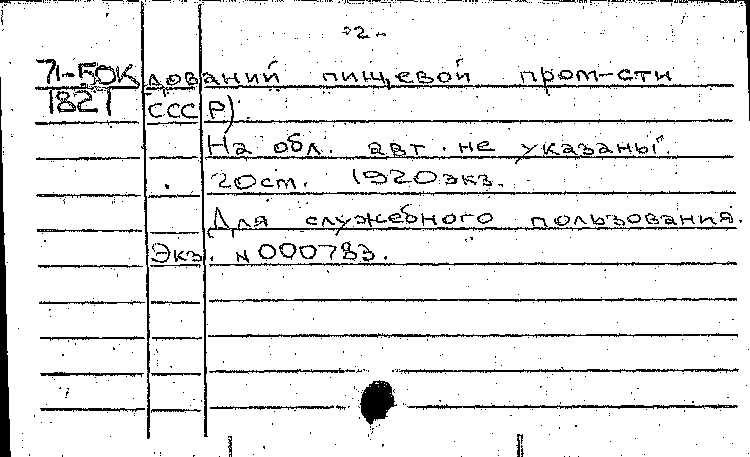 -2-
71-5ОК дований пищевой пром-сти
1821 СССР).
На обл. авт. не указаны.
20см. 1920экз.
Для служебного пользования.
Экз. N 000783.